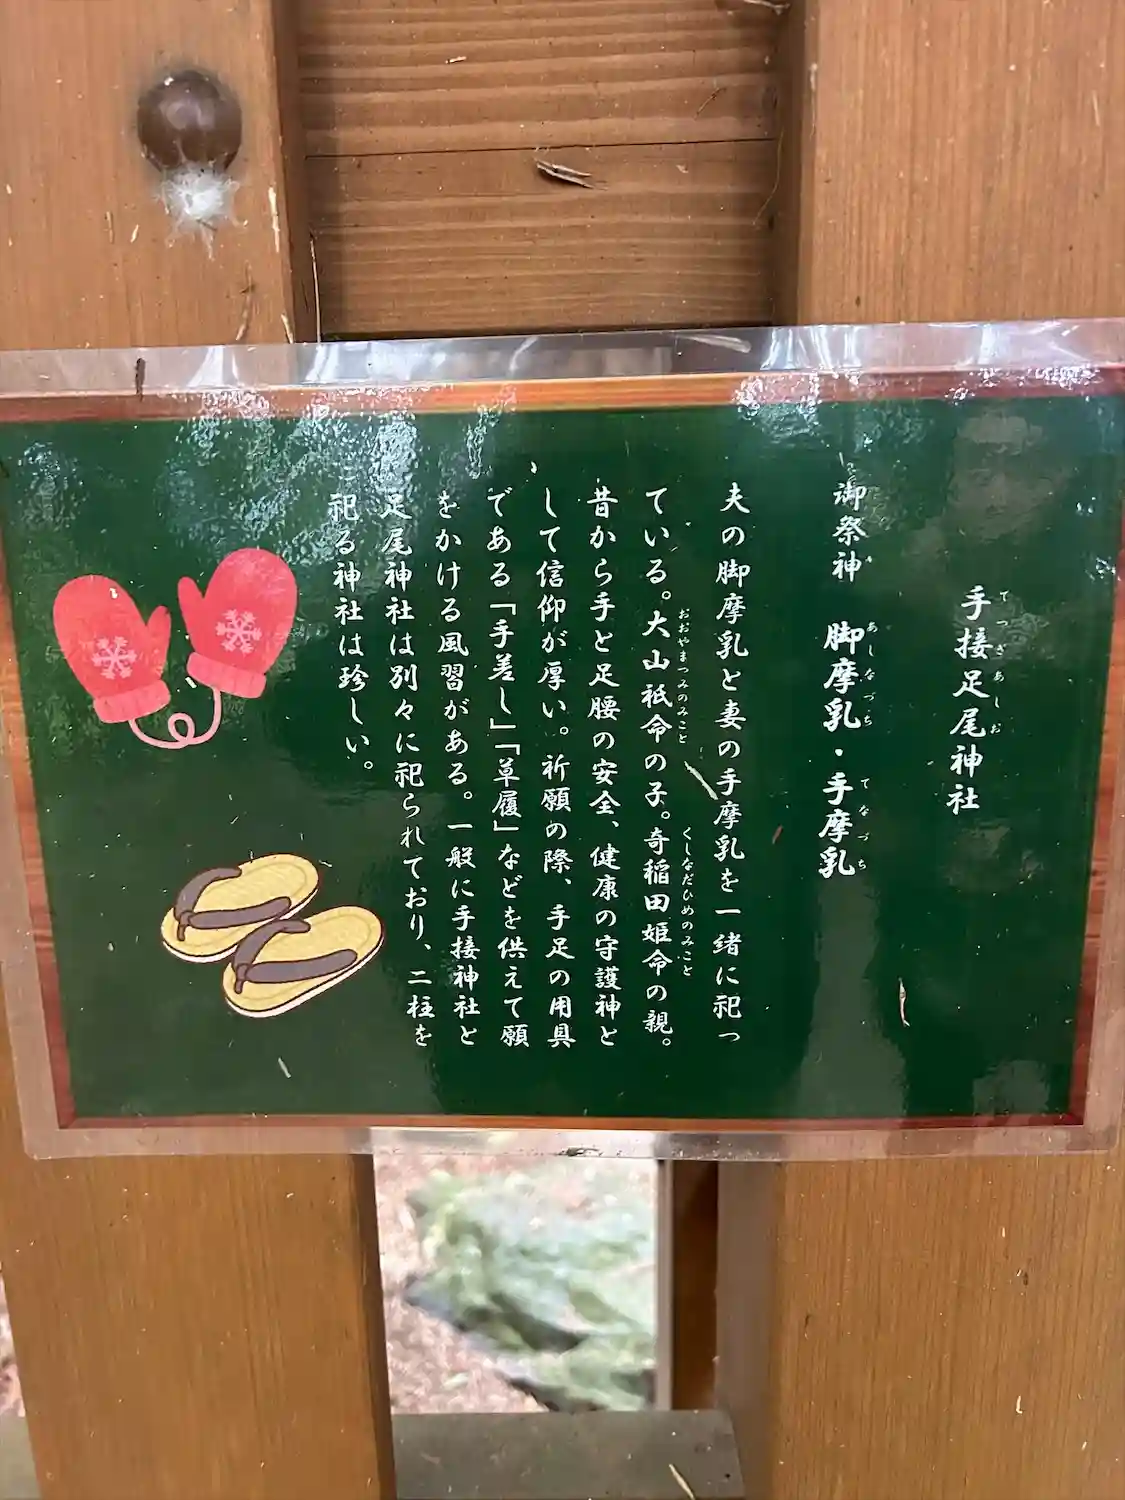 手接足尾神社
御祭神 脚摩乳・手摩乳
夫の脚摩乳と妻の手摩乳を一緒に祀っ
ている。大山祇命の子。奇稲田姫命の親。
昔から手と足腰の安全、健康の守護神と
して信仰が厚い。祈願の際、手足の用具
である「手差し」「草履」などを供えて願
をかける風習がある。一般に手接神社と
足尾神社は別々に祀られており、二柱を
祀る神社は珍しい。